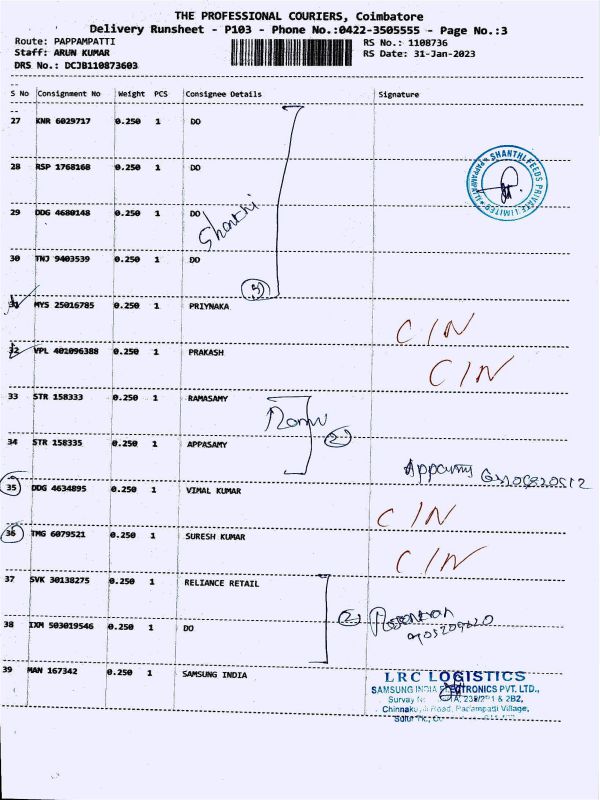 THE PROFESSIONAL COURIERS, Coimbatore
Delivery Runsheet - P103 - Phone No.:0422-3505555 - Page No.:3
Route: PAPPAMPATTI
RS No.: 1108736
Staff: ARUN KUMAR
RS Date: 31-Jan-2023
DRS No.: DCJB110873603
S No Consignment No Weight PCS Consignee Details Signature
27 KNR 6029717 0.250 1 DO
28 RSP 1768168 0.250 1 DO
SHANTHI FEEDS PRIVATE LIMITED
29 DDG 4680148 0.250 1 DO
Shanthi
30 TNJ 9403539 0.250 1 DO
31 MYS 25016785 0.250 1 PRIYNAKA
C/N
32 VPL 401096388 0.250 1 PRAKASH
C/N
33 STR 158333 0.250 1 RAMASAMY
2
34 STR 158335 0.250 1 APPASAMY
35 DDG 4634895 0.250 1 VIMAL KUMAR
C/N
36 TMG 6079521 0.250 1 SURESH KUMAR
C/N
37 SVK 30138275 0.250 1 RELIANCE RETAIL
2
38 IXM 503019546 0.250 1 DO
39 MAN 167342 0.250 1 SAMSUNG INDIA
LRC LOGISTICS
SAMSUNG INDIA ELECTRONICS PVT. LTD.,